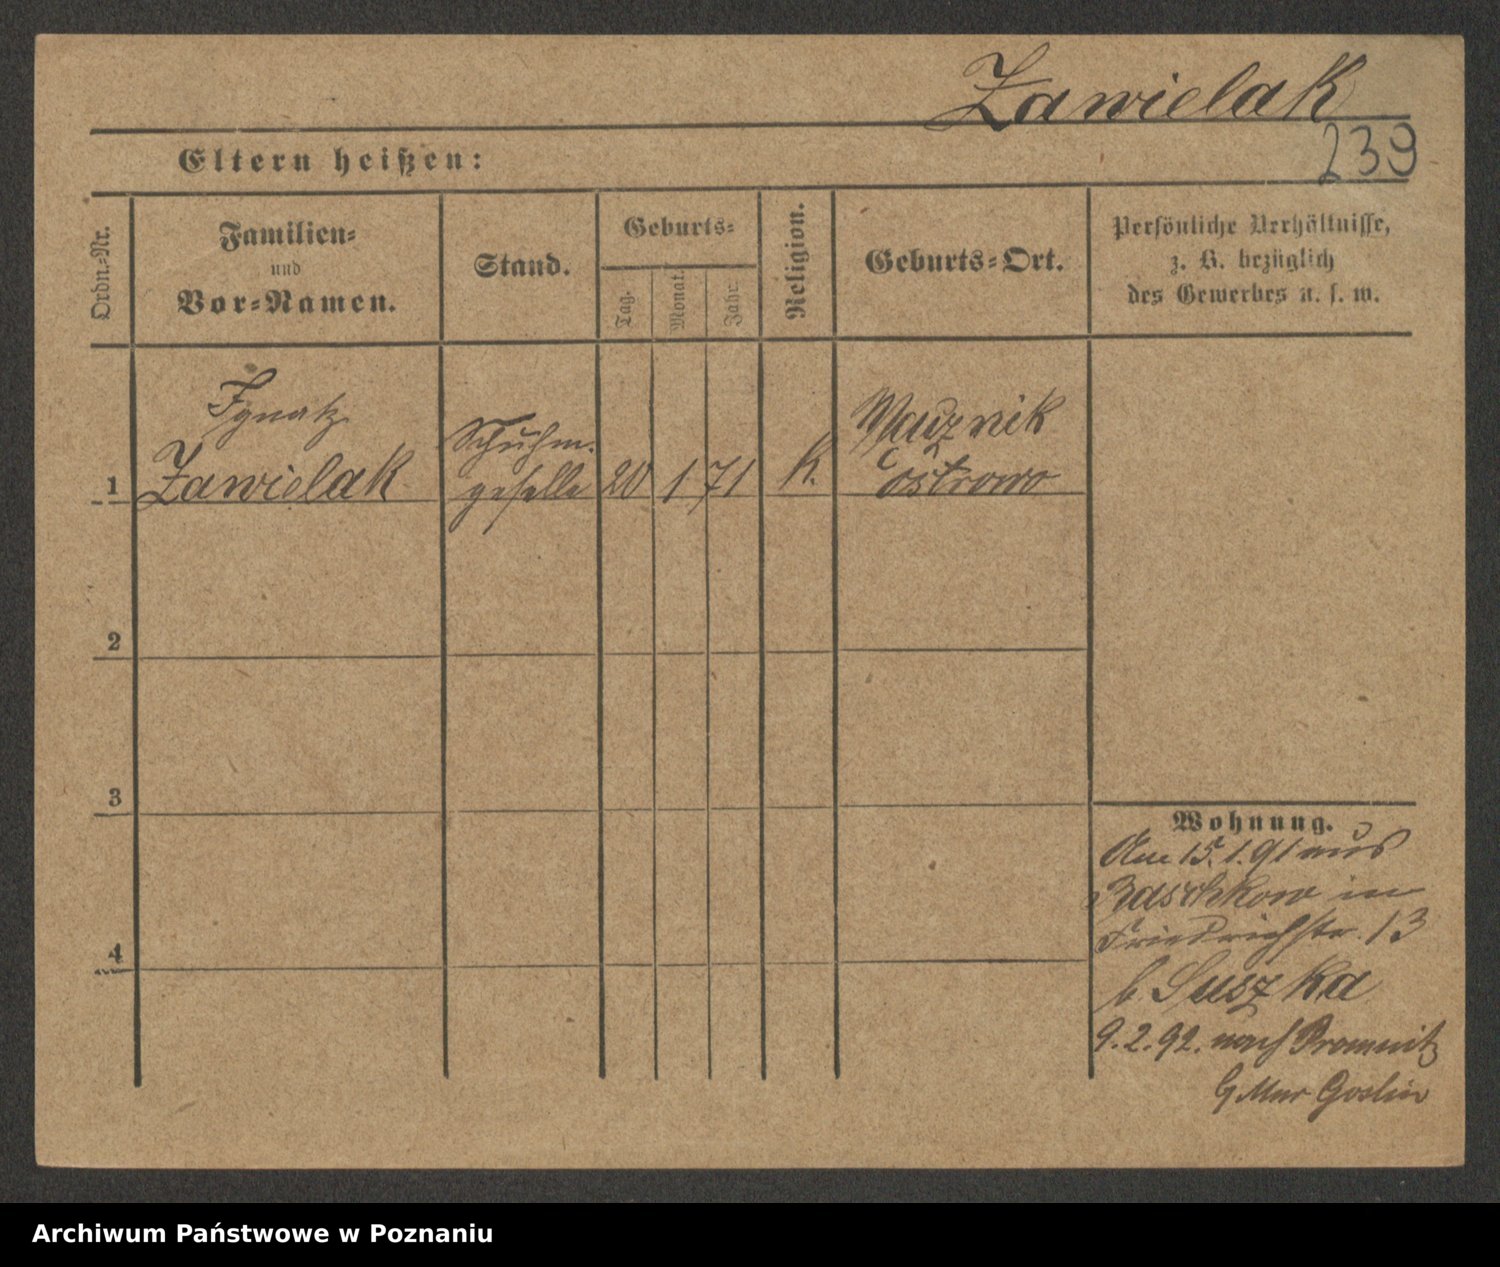 Zawielak
239
Eltern heißen:
Ordn.-Nr.
Familien-
und
Vor-Namen.
Stand.
Geburts-
Tag.
Monat.
Jahr.
Religion.
Geburts-Ort.
Persönliche Verhältnisse,
z. B. bezüglich
des Gewerbes u. s. w.
1
Ignatz
Zawielak
Schuhm.
geselle
20
1
71
K.
Ostrowo
2
3
4
Wohnung.
Am 15.1.91 aus
Baschkow in
Friedrichstr. 13
b. Suszka
9.2.92. nach Promnitz
b Mur Goslin
Archiwum Państwowe w Poznaniu